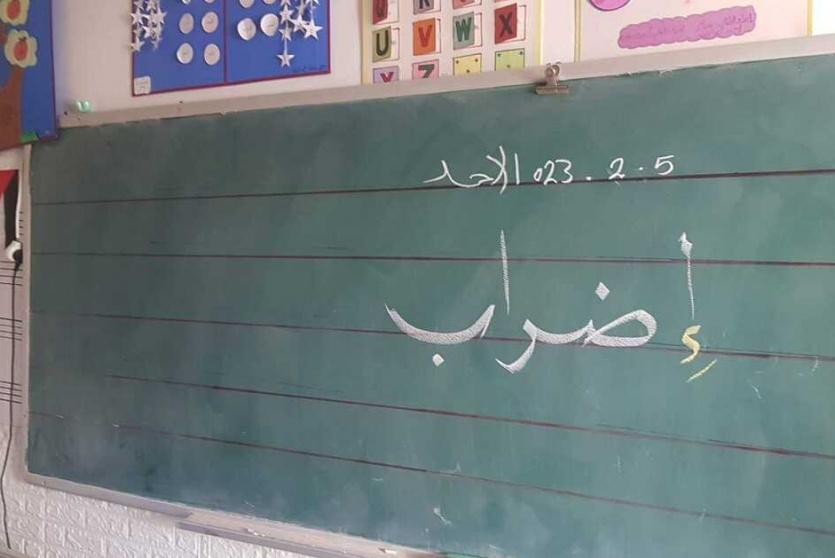 U V W X
Y Z
الاحد 023 . 2 . 5
إضراب